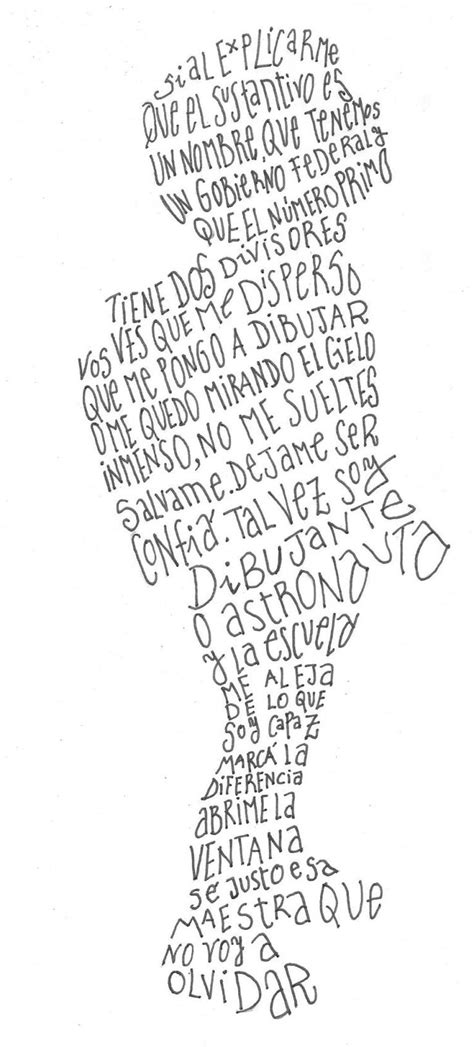 Si al Explicarme
Que el sustantivo es
un nombre, que tenemos
un gobierno federal y
que el número primo
tiene dos divisores
vos ves que me disperso
que me pongo a dibujar
o me quedo mirando el cielo
inmenso, no me sueltes
salvame. Dejame ser
Confiá. Tal vez soy
dibujante
o astronauta
y la escuela
me aleja
de lo que
soy capaz
marcá la
diferencia
abrime la
ventana
se justo esa
maestra que
no voy a
olvidar